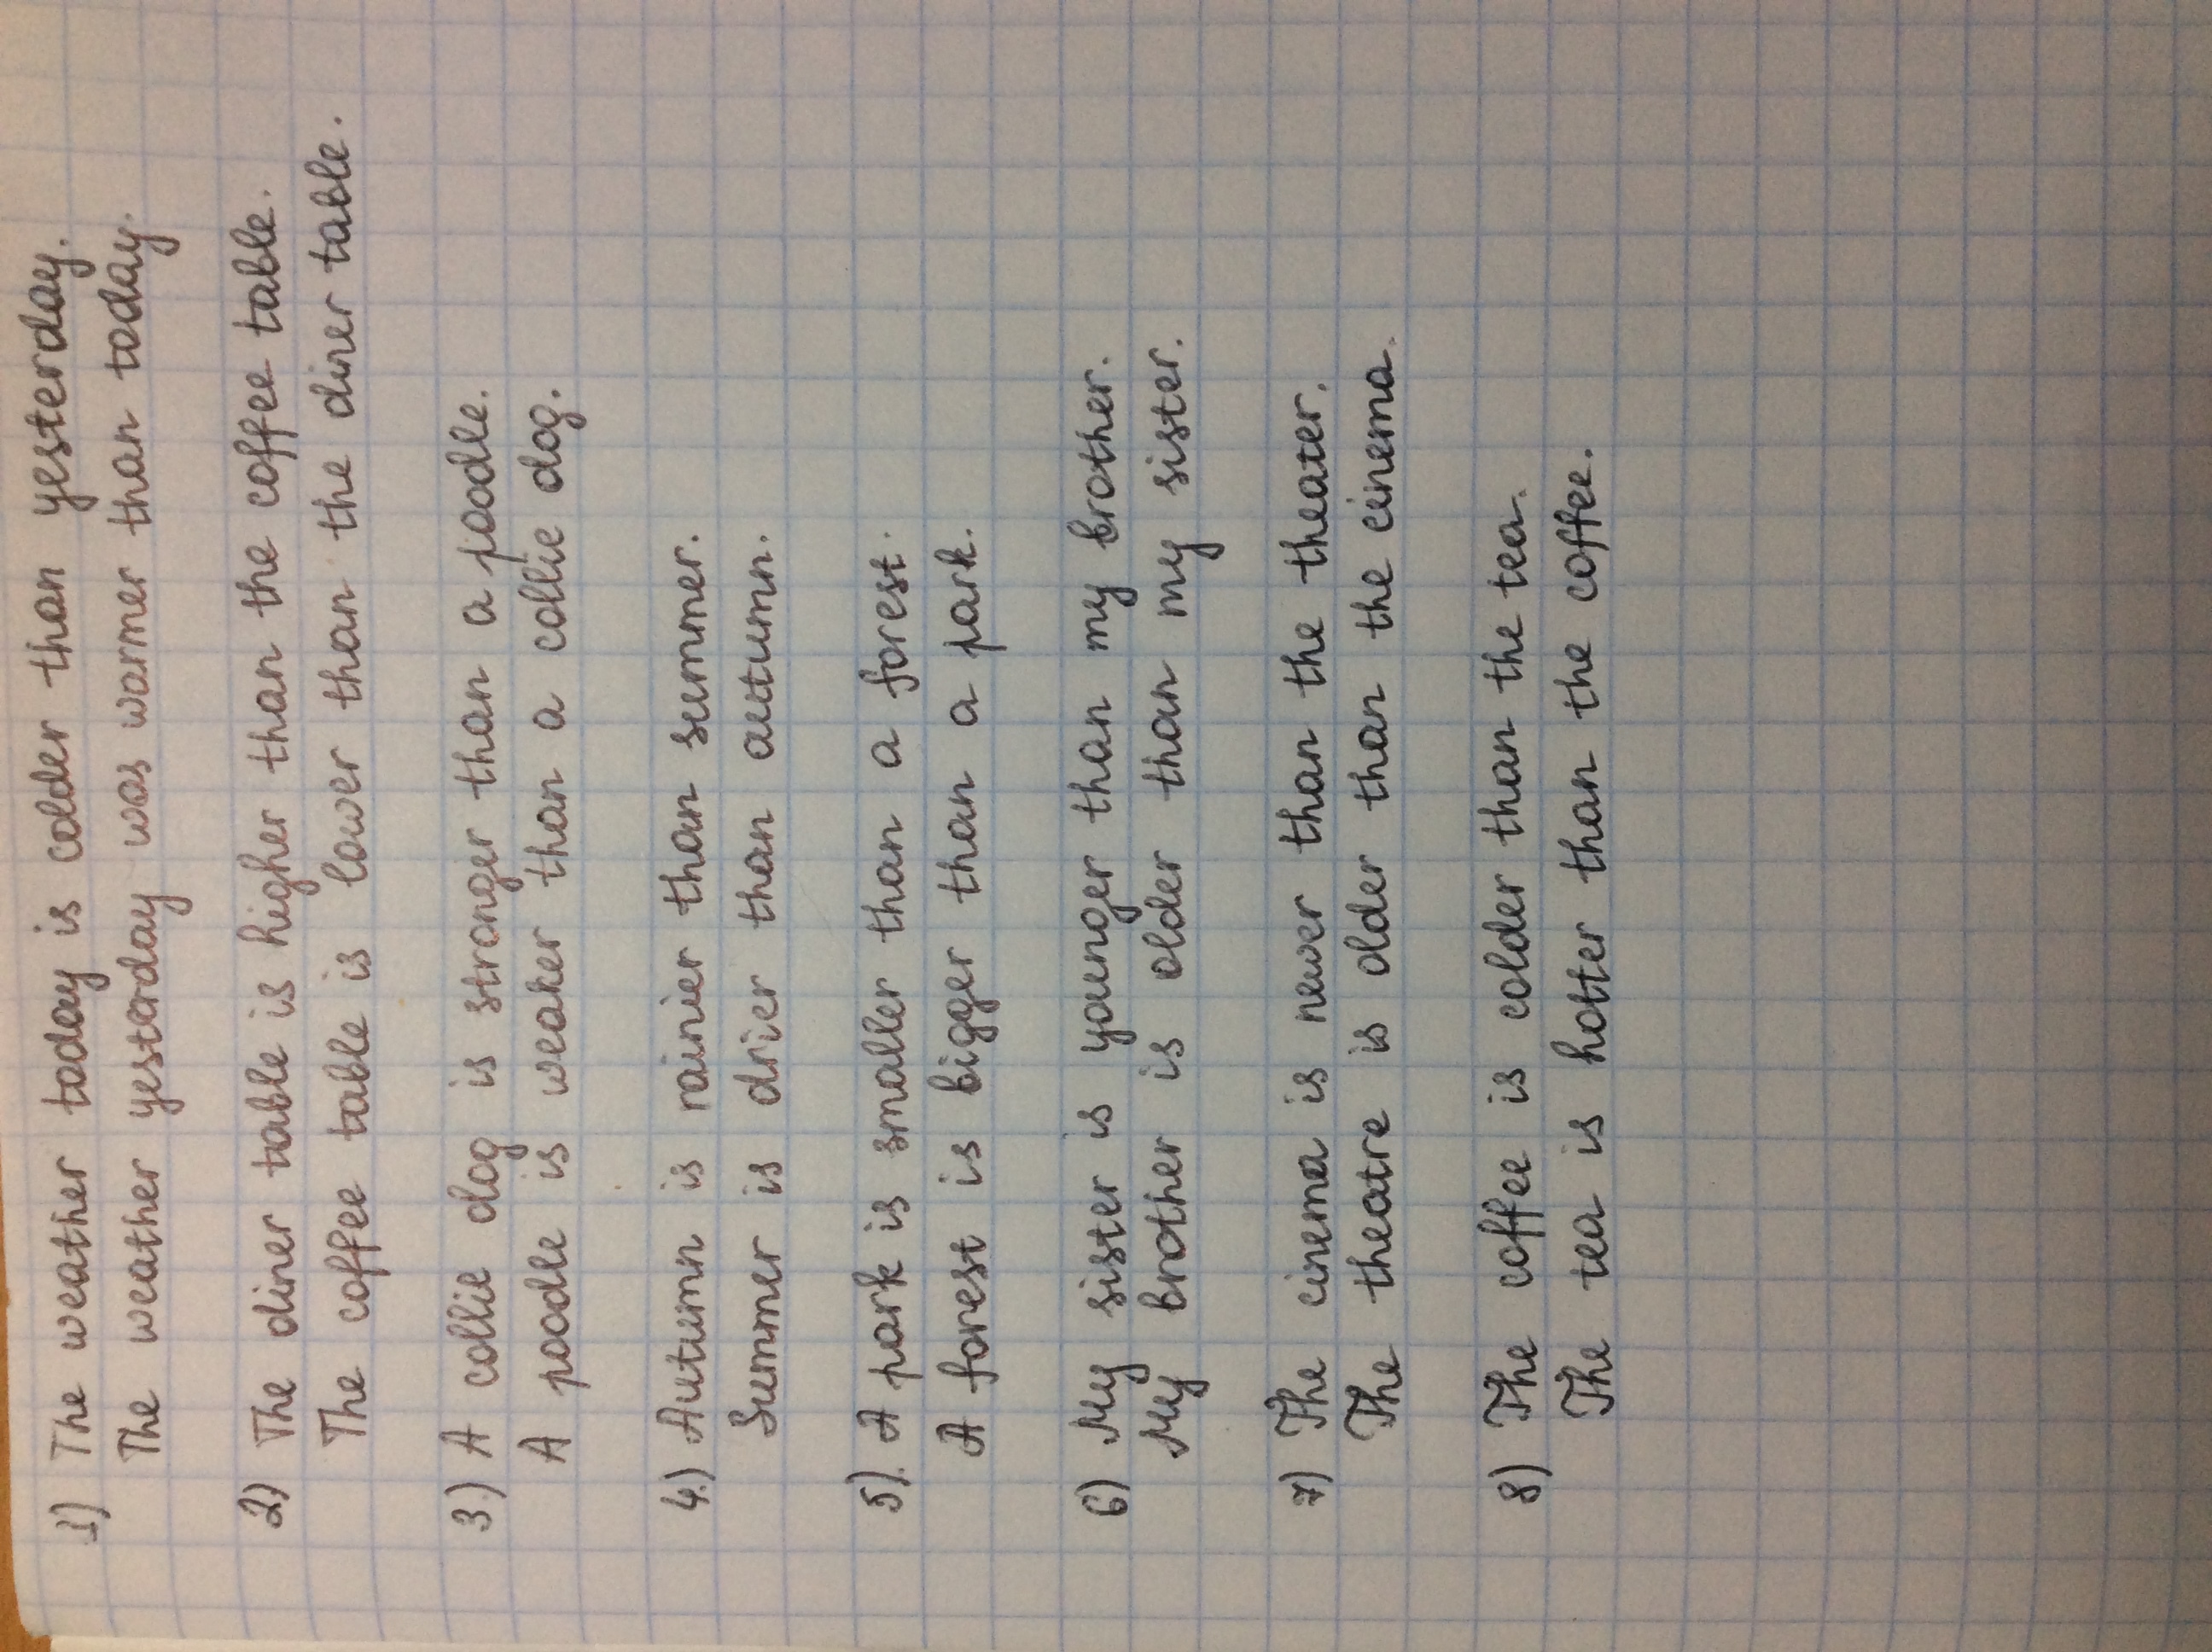 1) The weather today is colder than yesterday.
The weather yesterday was warmer than today.
2) The diner table is higher than the coffee table.
The coffee table is lower than the diner table.
3.) A collie dog is stronger than a poodle.
A poodle is weaker than a collie dog.
4.) Autumn is rainier than summer.
Summer is drier than autumn.
5). A park is smaller than a forest.
A forest is bigger than a park.
6) My sister is younger than my brother.
My brother is older than my sister.
7) The cinema is newer than the theater.
The theatre is older than the cinema.
8) The coffee is colder than the tea.
The tea is hotter than the coffee.